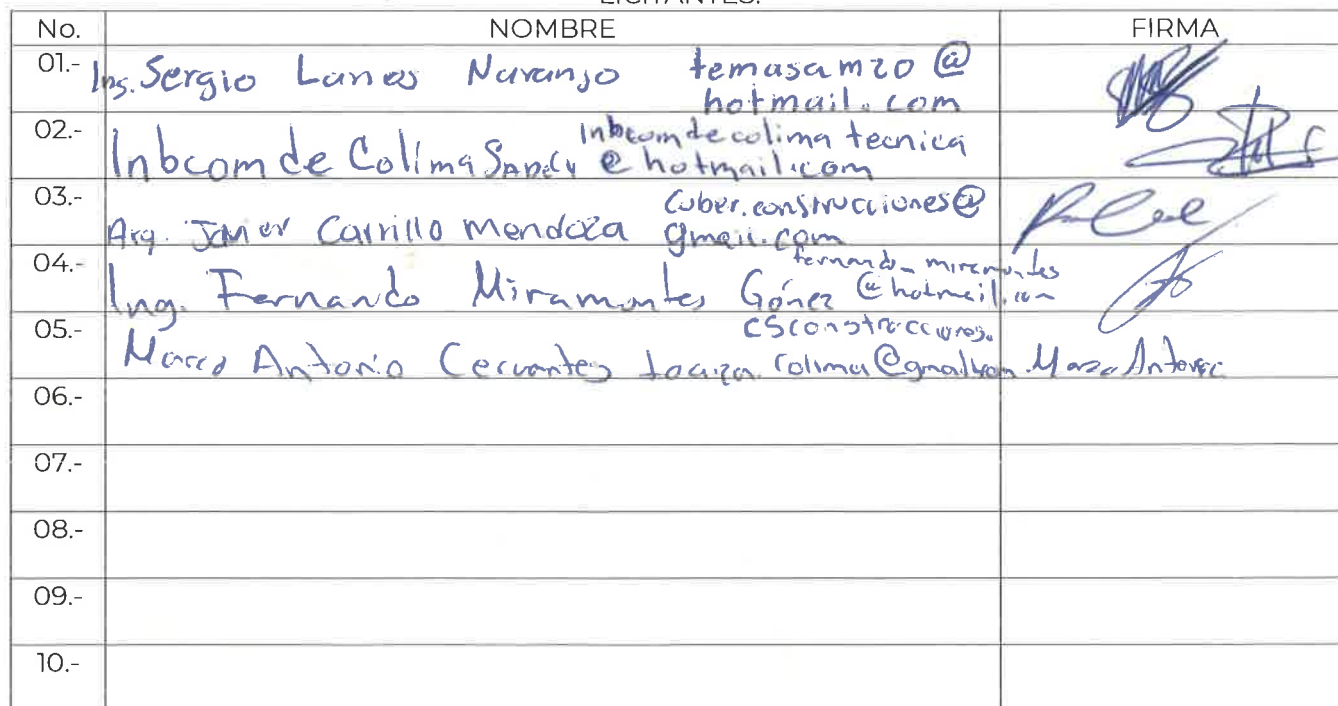 LICITANTES.
No. NOMBRE FIRMA
01.- Ing. Sergio Lanes Naranjo temasamzo@
hotmail.com
02.- Inbcom de Colima inbcomdecolima tecnica
@hotmail.com
03.- Arq. Javier Carrillo Mendoza cuber.construcciones@
gmail.com
04.- Ing. Fernando Miramontes Gómez fernando_miramontes
@hotmail.com
05.- Marco Antonio Cervantes csconstrucciones.
colima@gmail.com Marco Antonio
06.-
07.-
08.-
09.-
10.-